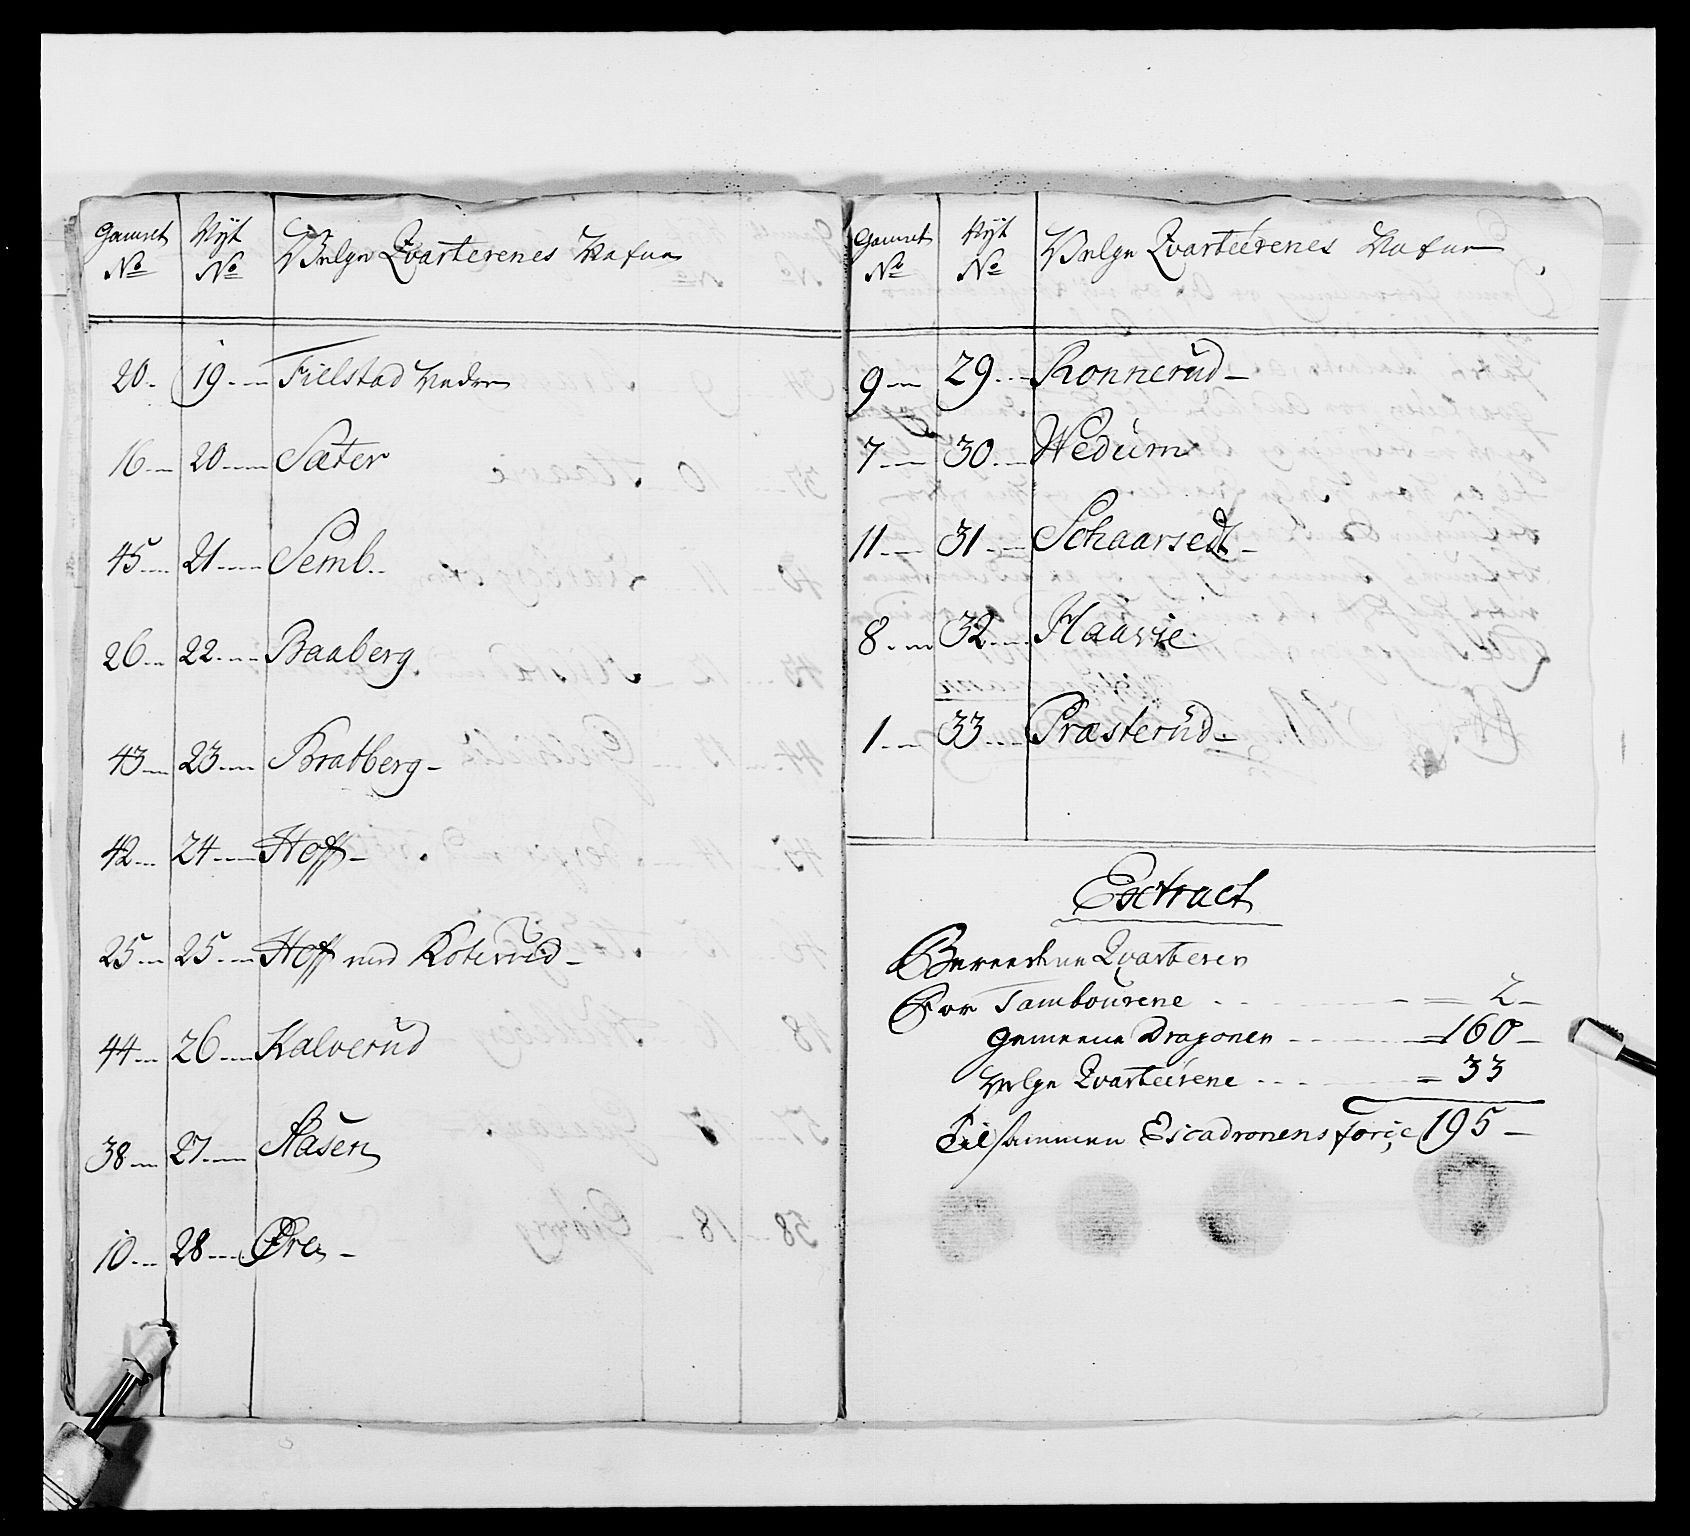 Gamet Nÿt Velge Qvarterenes Nafne
No No
20. 19. Fielstad Nedre
16 20 Sæter
45 21 Semb
26 22 Baaberg
43 23 Bratberg
42 24 Hoff
25 25 Hoff med Koterud
44 26 Kalverud
38 27 Aasen
10 28 Øre
Gamet Nÿt Velge Qvarteerenes Nafne
No No
9 29 Ronnerud
7 30 Wedum
11 31 Schaarsedt
8 32 Haavie
1 33 Præsterud
Extract
Qvarterer
For Tambourene = 2
gemeene Dragoner = 160
Velge Qvarteerene = 33
Tilsammen Escadronens force 195